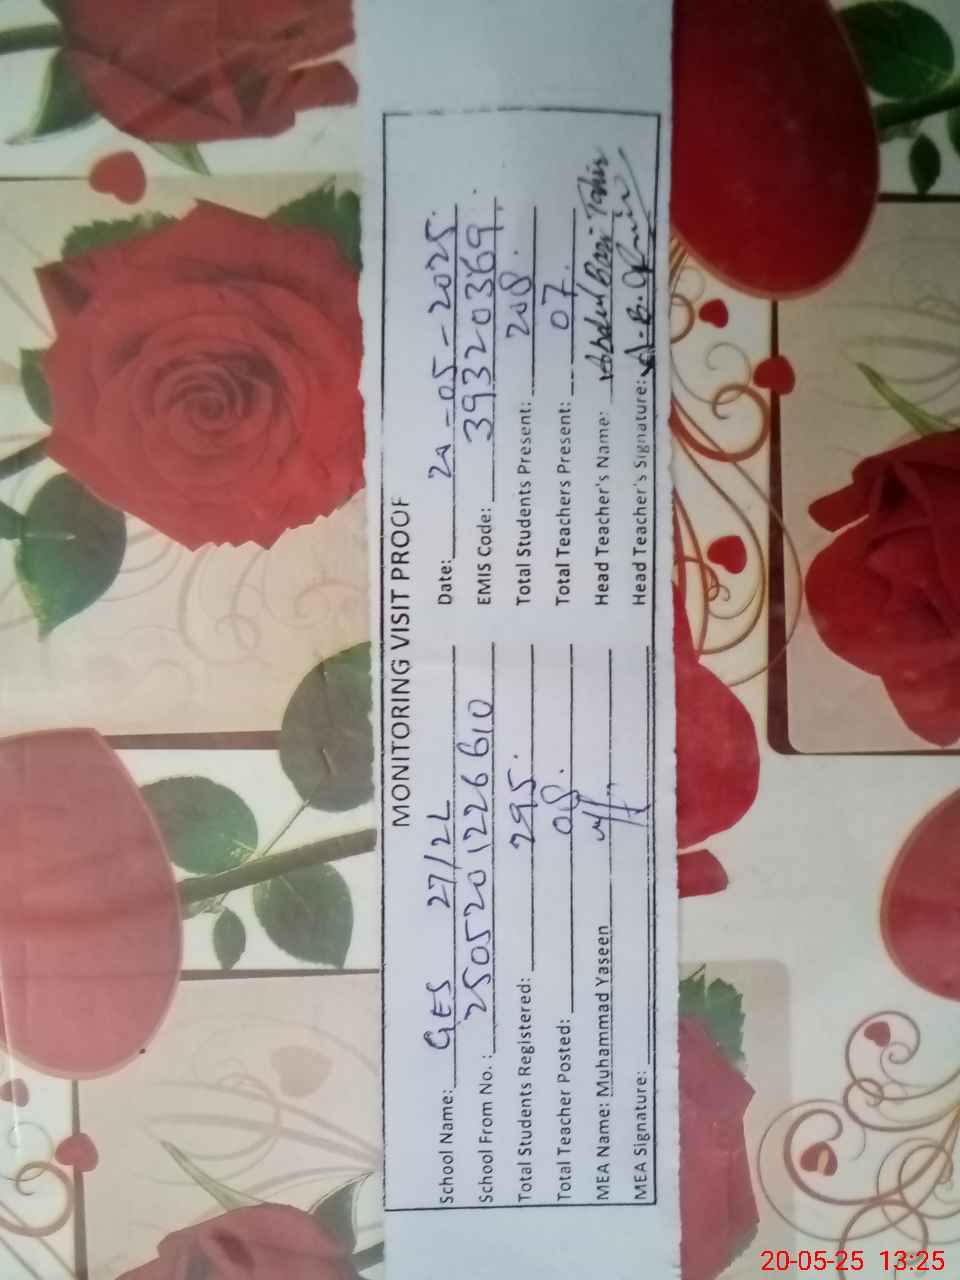 MONITORING VISIT PROOF
School Name: GES 27/2L Date: 20-05-2025.
School From No. : 2505201226610 EMIS Code: 39320369.
Total Students Registered: 295. Total Students Present: 208.
Total Teacher Posted: 08. Total Teachers Present: 07.
MEA Name: Muhammad Yaseen Head Teacher's Name: Abdul Bari Tahir
MEA Signature: Head Teacher's Signature:
20-05-25 13:25